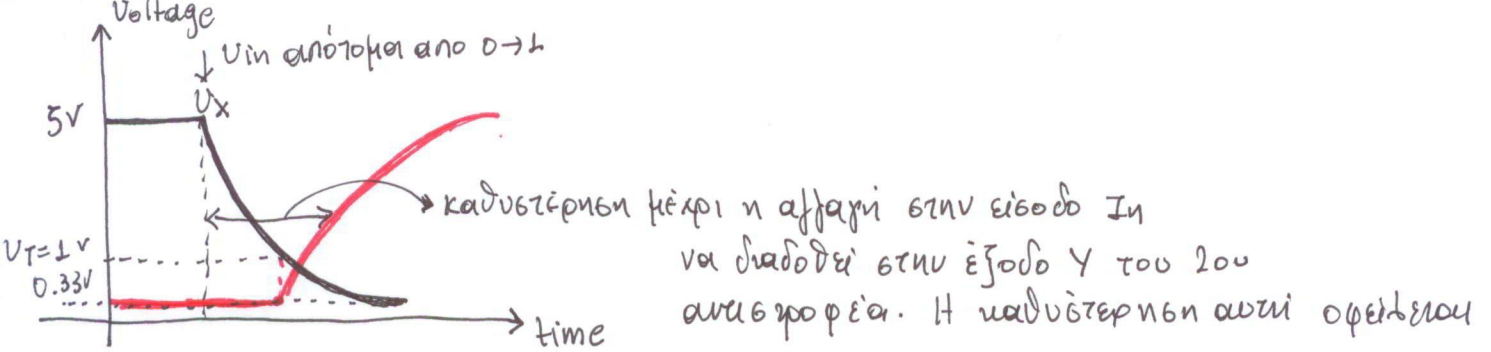 Voltage
Vin απότομα απο 0→1
Vx
5V
καθυστέρηση μέχρι η αλλαγή στην είσοδο In
VT=1V
να διαδοθεί στην έξοδο Y του 2ου
0.33V
αντιστροφέα. Η καθυστέρηση αυτή οφείλεται
time